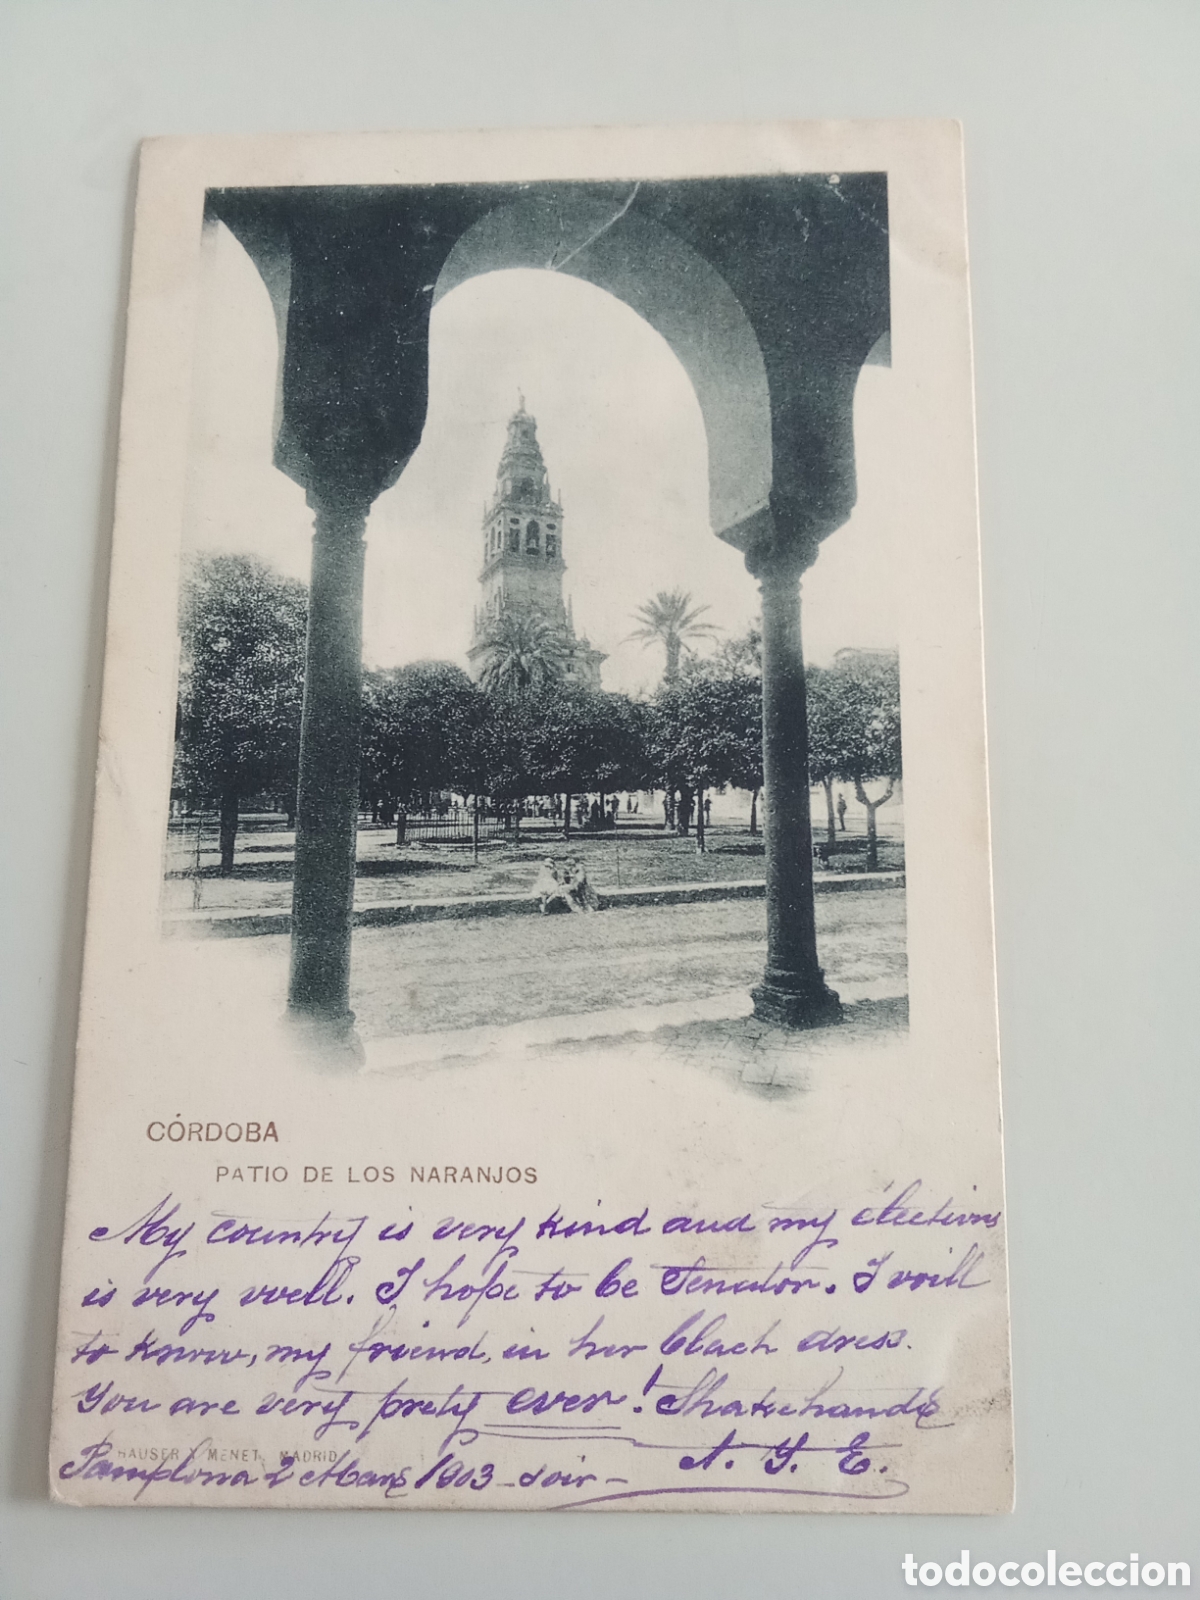 CÓRDOBA
PATIO DE LOS NARANJOS
My country is very kind and my élections
is very well. I hope to be Senator. I will
to know, my friend, in her blach dress.
You are very prety ever! Shakehands
HAUSER Y MENET. MADRID
Pamplona 2 Mars 1903 - soir -
A. Y. E.
todocoleccion